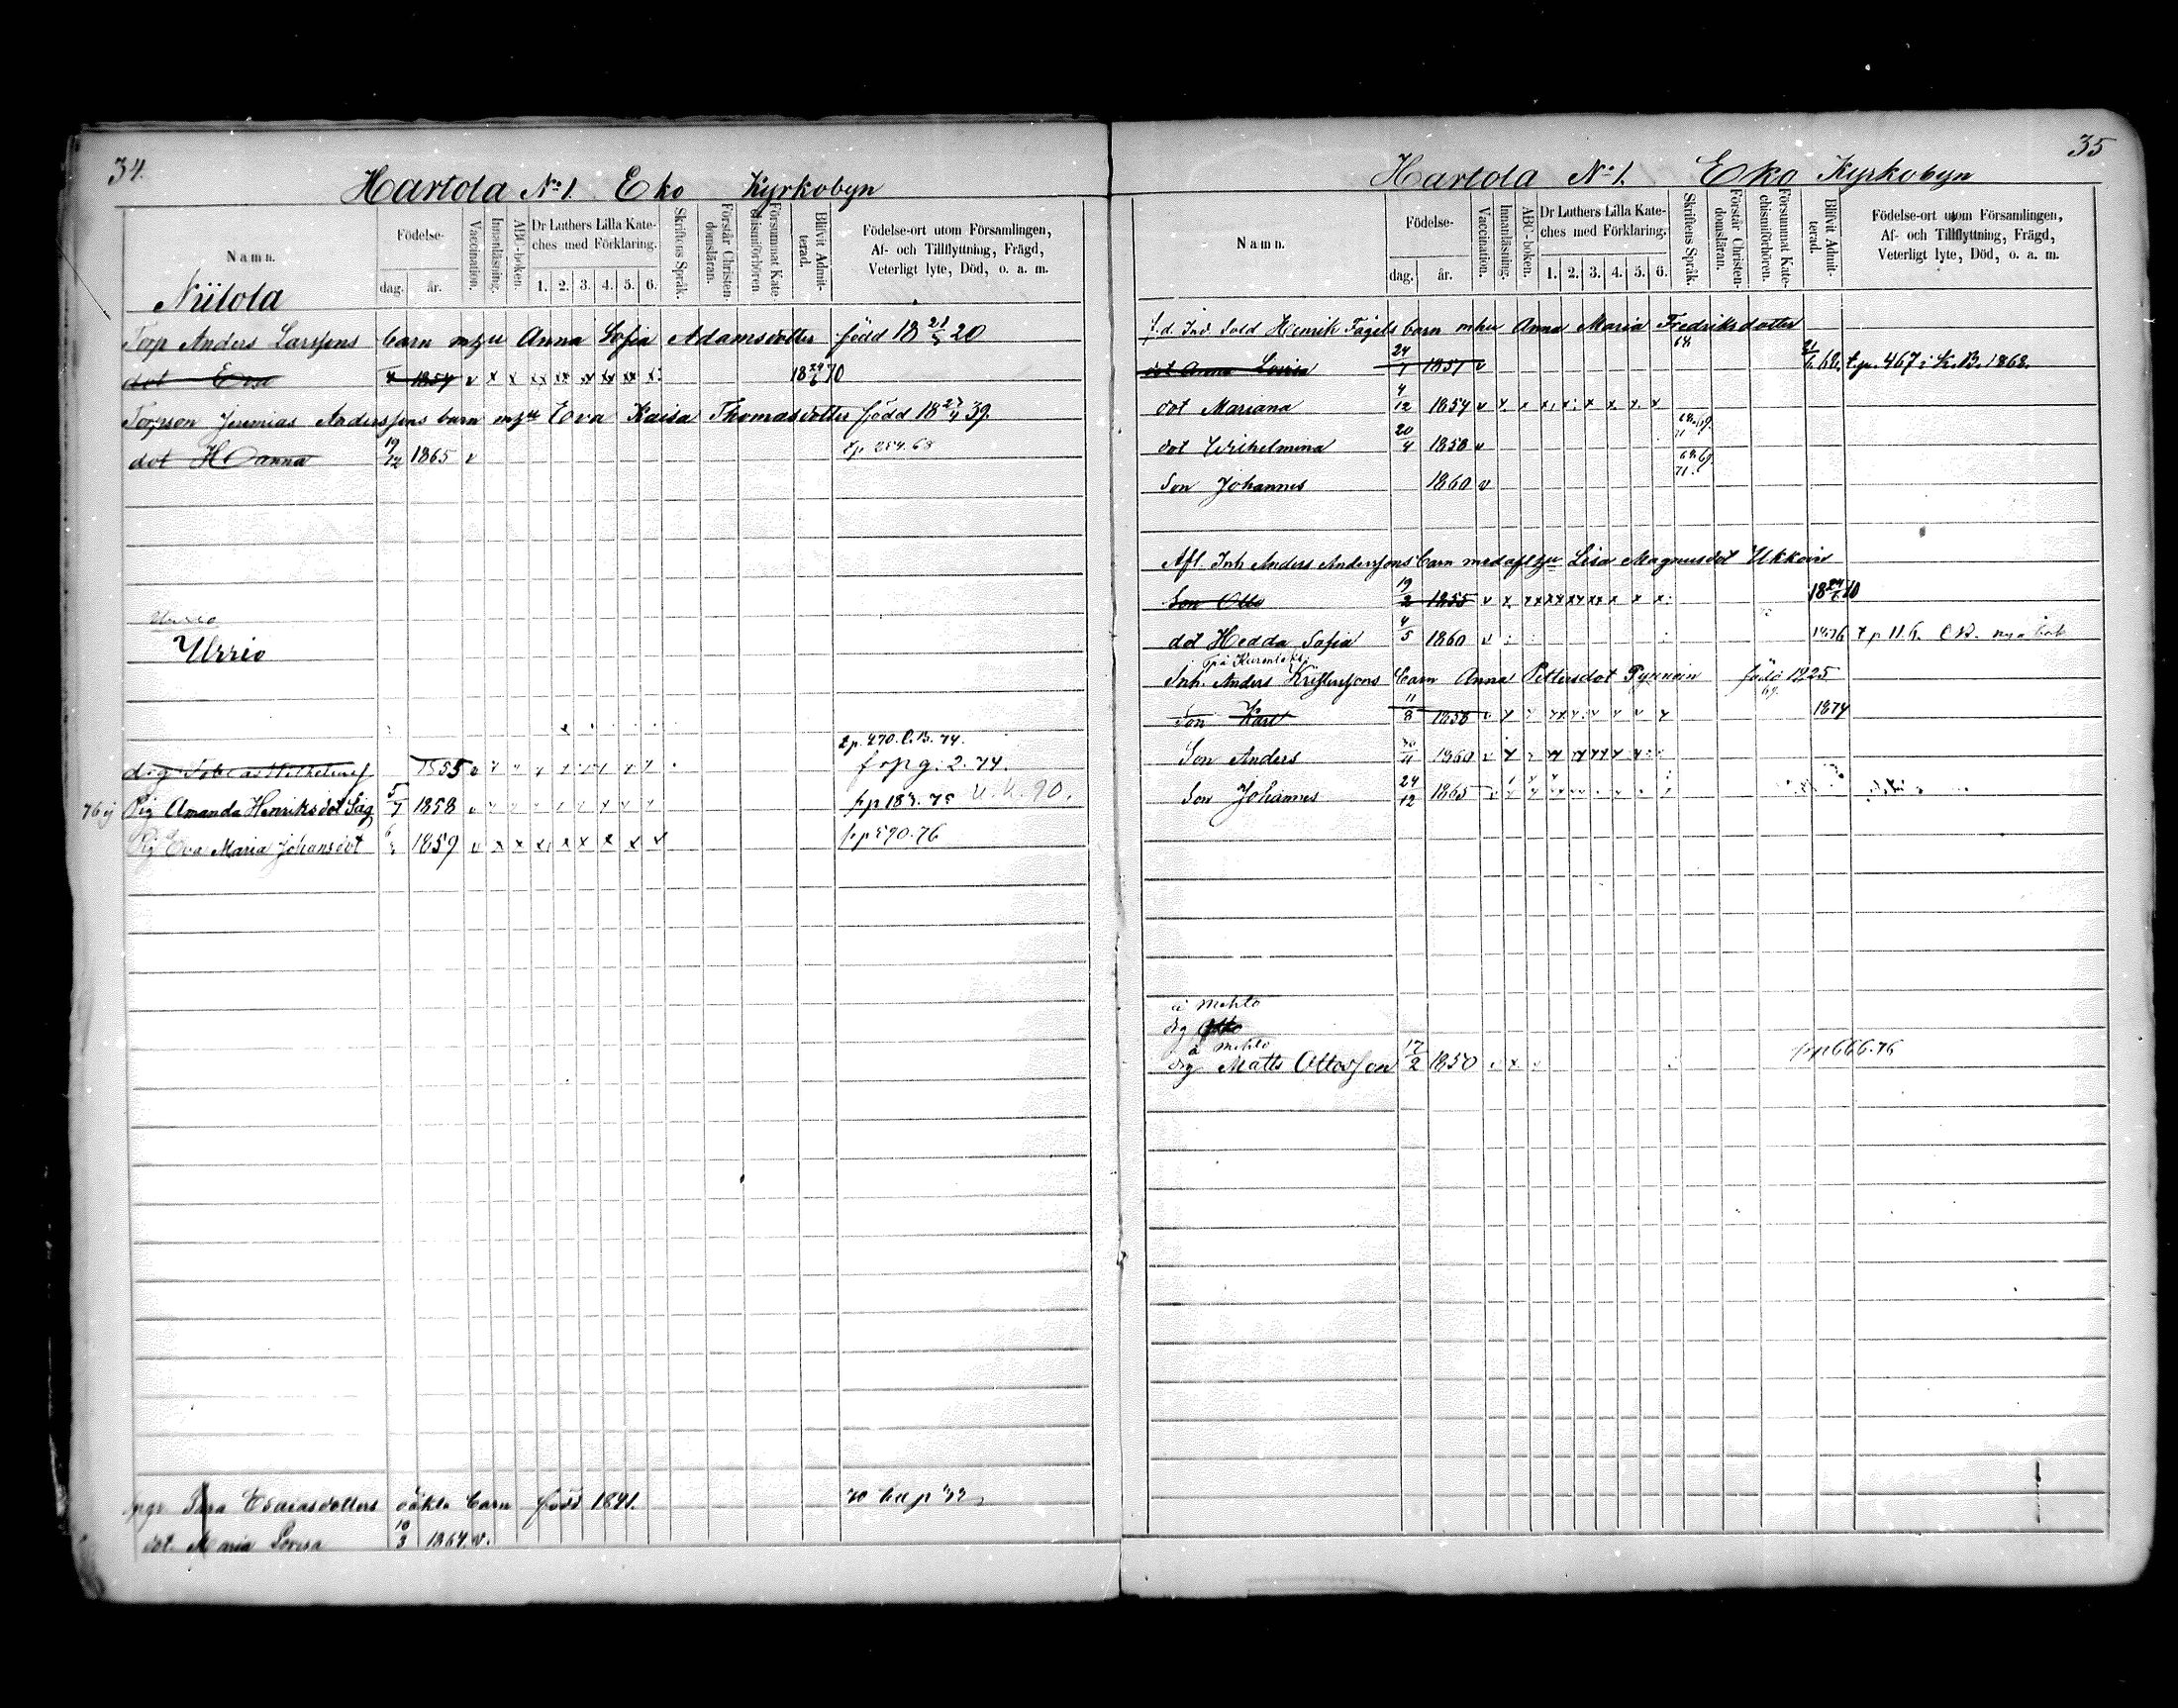 34.
Hartola No 1. Eko Kyrkobyn
Namn.
Födelse-
dag.
år.
Vaccination.
Innanläsning.
ABC-boken.
Dr Luthers Lilla Kate-
ches med Förklaring.
1. 2. 3. 4. 5. 6.
Skriftens Språk.
Förstår Christen-
domsläran.
Försummat Kate-
chismiförhören
Blifvit Admit-
terad.
Födelse-ort utom Församlingen,
Af- och Tillflyttning, Frägd,
Veterligt lyte, Död, o. a. m.
Niitola
Torp Anders Larssons barn m hu Anna Sofia Adamsdotter född 18 21/5 20
dot Eva 1854 v x x xx xx xx xx xx x 18 24/6 70
Torpson Jeremias Anderssons barn m hu Eva Kaisa Thomasdotter född 18 27/4 39.
dot Hanna 19/12 1865 v
Urrio
2 p. 270. C.B. 74.
1855 v f p g. 2. 74.
Pig Amanda Henriksdot Säg 5/7 1858 v
Pig Eva Maria Johansdot 1859 v x x x x x x x x
Sara Esaiasdotters oäkta barn född 1841.
dot. Maria Lovisa 10/3 1864. v.
35
Hartola No 1. Eko Kyrkobyn
Namn.
Födelse-
dag.
år.
Vaccination.
Innanläsning.
ABC-boken.
Dr Luthers Lilla Kate-
ches med Förklaring.
1. 2. 3. 4. 5. 6.
Skriftens Språk.
Förstår Christen-
domsläran.
Försummat Kate-
chismiförhören.
Blifvit Admit-
terad.
Födelse-ort utom Församlingen,
Af- och Tillflyttning, Frägd,
Veterligt lyte, Död, o. a. m.
f.d. Ind. Sold Henrik Fagels barn m hu Anna Maria Fredriksdotter
dot Anna Lovisa 24/1 1851 v 68. 467 i K.B. 1868.
dot Mariana 4/12 1854 v x x x x x x x x
dot Wilhelmina 20/4 1858 v 71
Son Johannes 1860 v 68. 69. 71.
Afl. Inh Anders Anderssons barn med afl hu Lisa Magnusdot Ukkoin
Son Otto 19/2 1855 v x 18 24/6 70
dot Hedda Sofia 4/5 1860 v 1876
Inh. Anders Kristerssons barn Anna Pettersdot född 1825
Son Karl 11/8 1858 1874
Son Anders 1860 v
Son Johannes 24/12 1865
à Mehto
drg Otto
à Mehto
drg Matts Ottosson 17/2 1850 666. 76